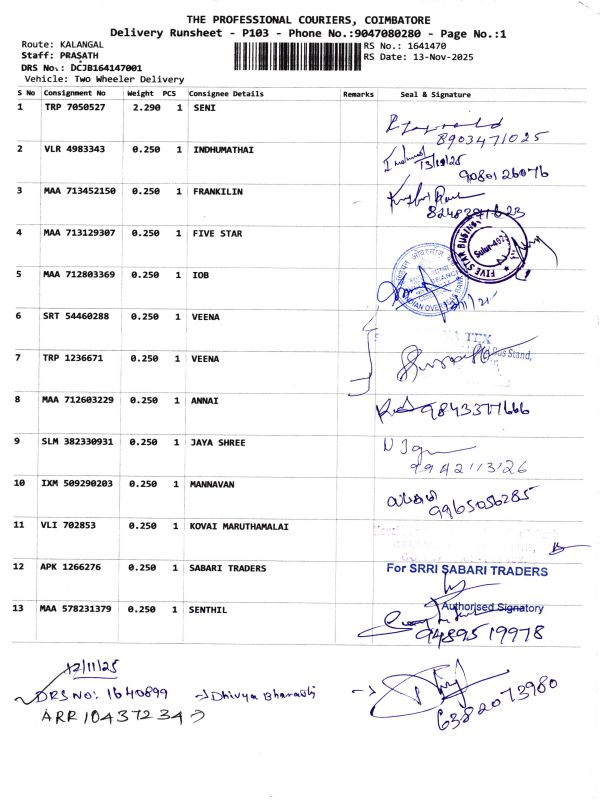 THE PROFESSIONAL COURIERS, COIMBATORE
Delivery Runsheet - P103 - Phone No.:9047080280 - Page No.:1
Route: KALANGAL RS No.: 1641470
Staff: PRASATH RS Date: 13-Nov-2025
DRS No.: DCJB164147001
Vehicle: Two Wheeler Delivery
S No Consignment No Weight PCS Consignee Details Remarks Seal & Signature
1 TRP 7050527 2.290 1 SENI
8903471025
2 VLR 4983343 0.250 1 INDHUMATHAI
9080126076
3 MAA 713452150 0.250 1 FRANKILIN
4 MAA 713129307 0.250 1 FIVE STAR
FIVE STAR
5 MAA 712803369 0.250 1 IOB
6 SRT 54460288 0.250 1 VEENA
TEX
Bus Stand,
7 TRP 1236671 0.250 1 VEENA
8 MAA 712603229 0.250 1 ANNAI
9843377666
9 SLM 382330931 0.250 1 JAYA SHREE
9942113126
10 IXM 509290203 0.250 1 MANNAVAN
9965056285
11 VLI 702853 0.250 1 KOVAI MARUTHAMALAI
12 APK 1266276 0.250 1 SABARI TRADERS
For SRRI SABARI TRADERS
Authorised Signatory
13 MAA 578231379 0.250 1 SENTHIL
9489519978
12/11/25
DRS NO: 1640899 → Dhivya Bharathi →
ARR 10437234 →
6382073980